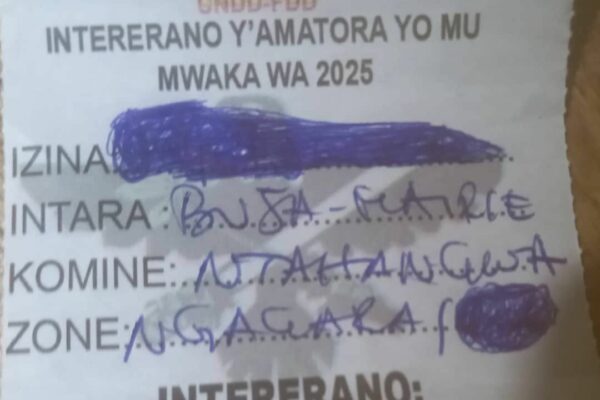 CNDD-FDD
INTERERANO Y'AMATORA YO MU
MWAKA WA 2025
IZINA
INTARA : BUJA-MAIRIE
KOMINE: NTAHANGWA
ZONE: NGAGARA
INTERERANO: